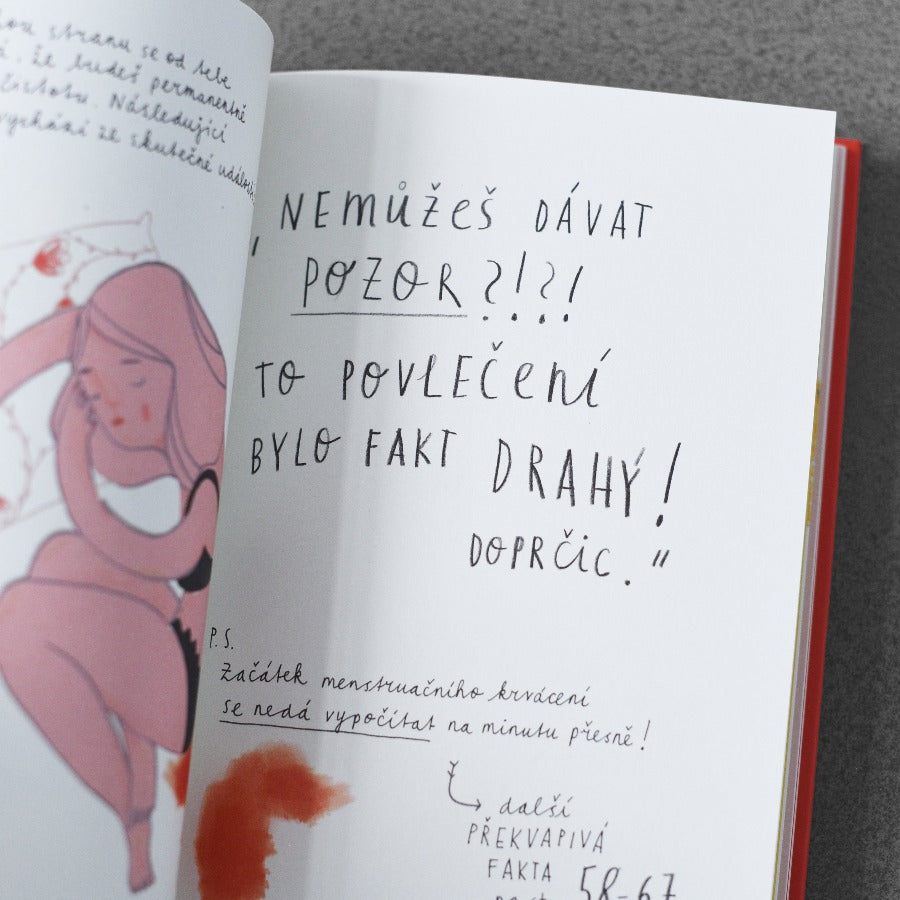 stranu se od tebe
že budeš permanentně
čistotu. Následující
vychází ze skutečné události
„NEMŮŽEŠ DÁVAT
POZOR?!?!
TO POVLEČENÍ
BYLO FAKT DRAHÝ!
DOPRČIC.“
P.S.
Začátek menstruačního krvácení
se nedá vypočítat na minutu přesně!
další
PŘEKVAPIVÁ
FAKTA
58–67